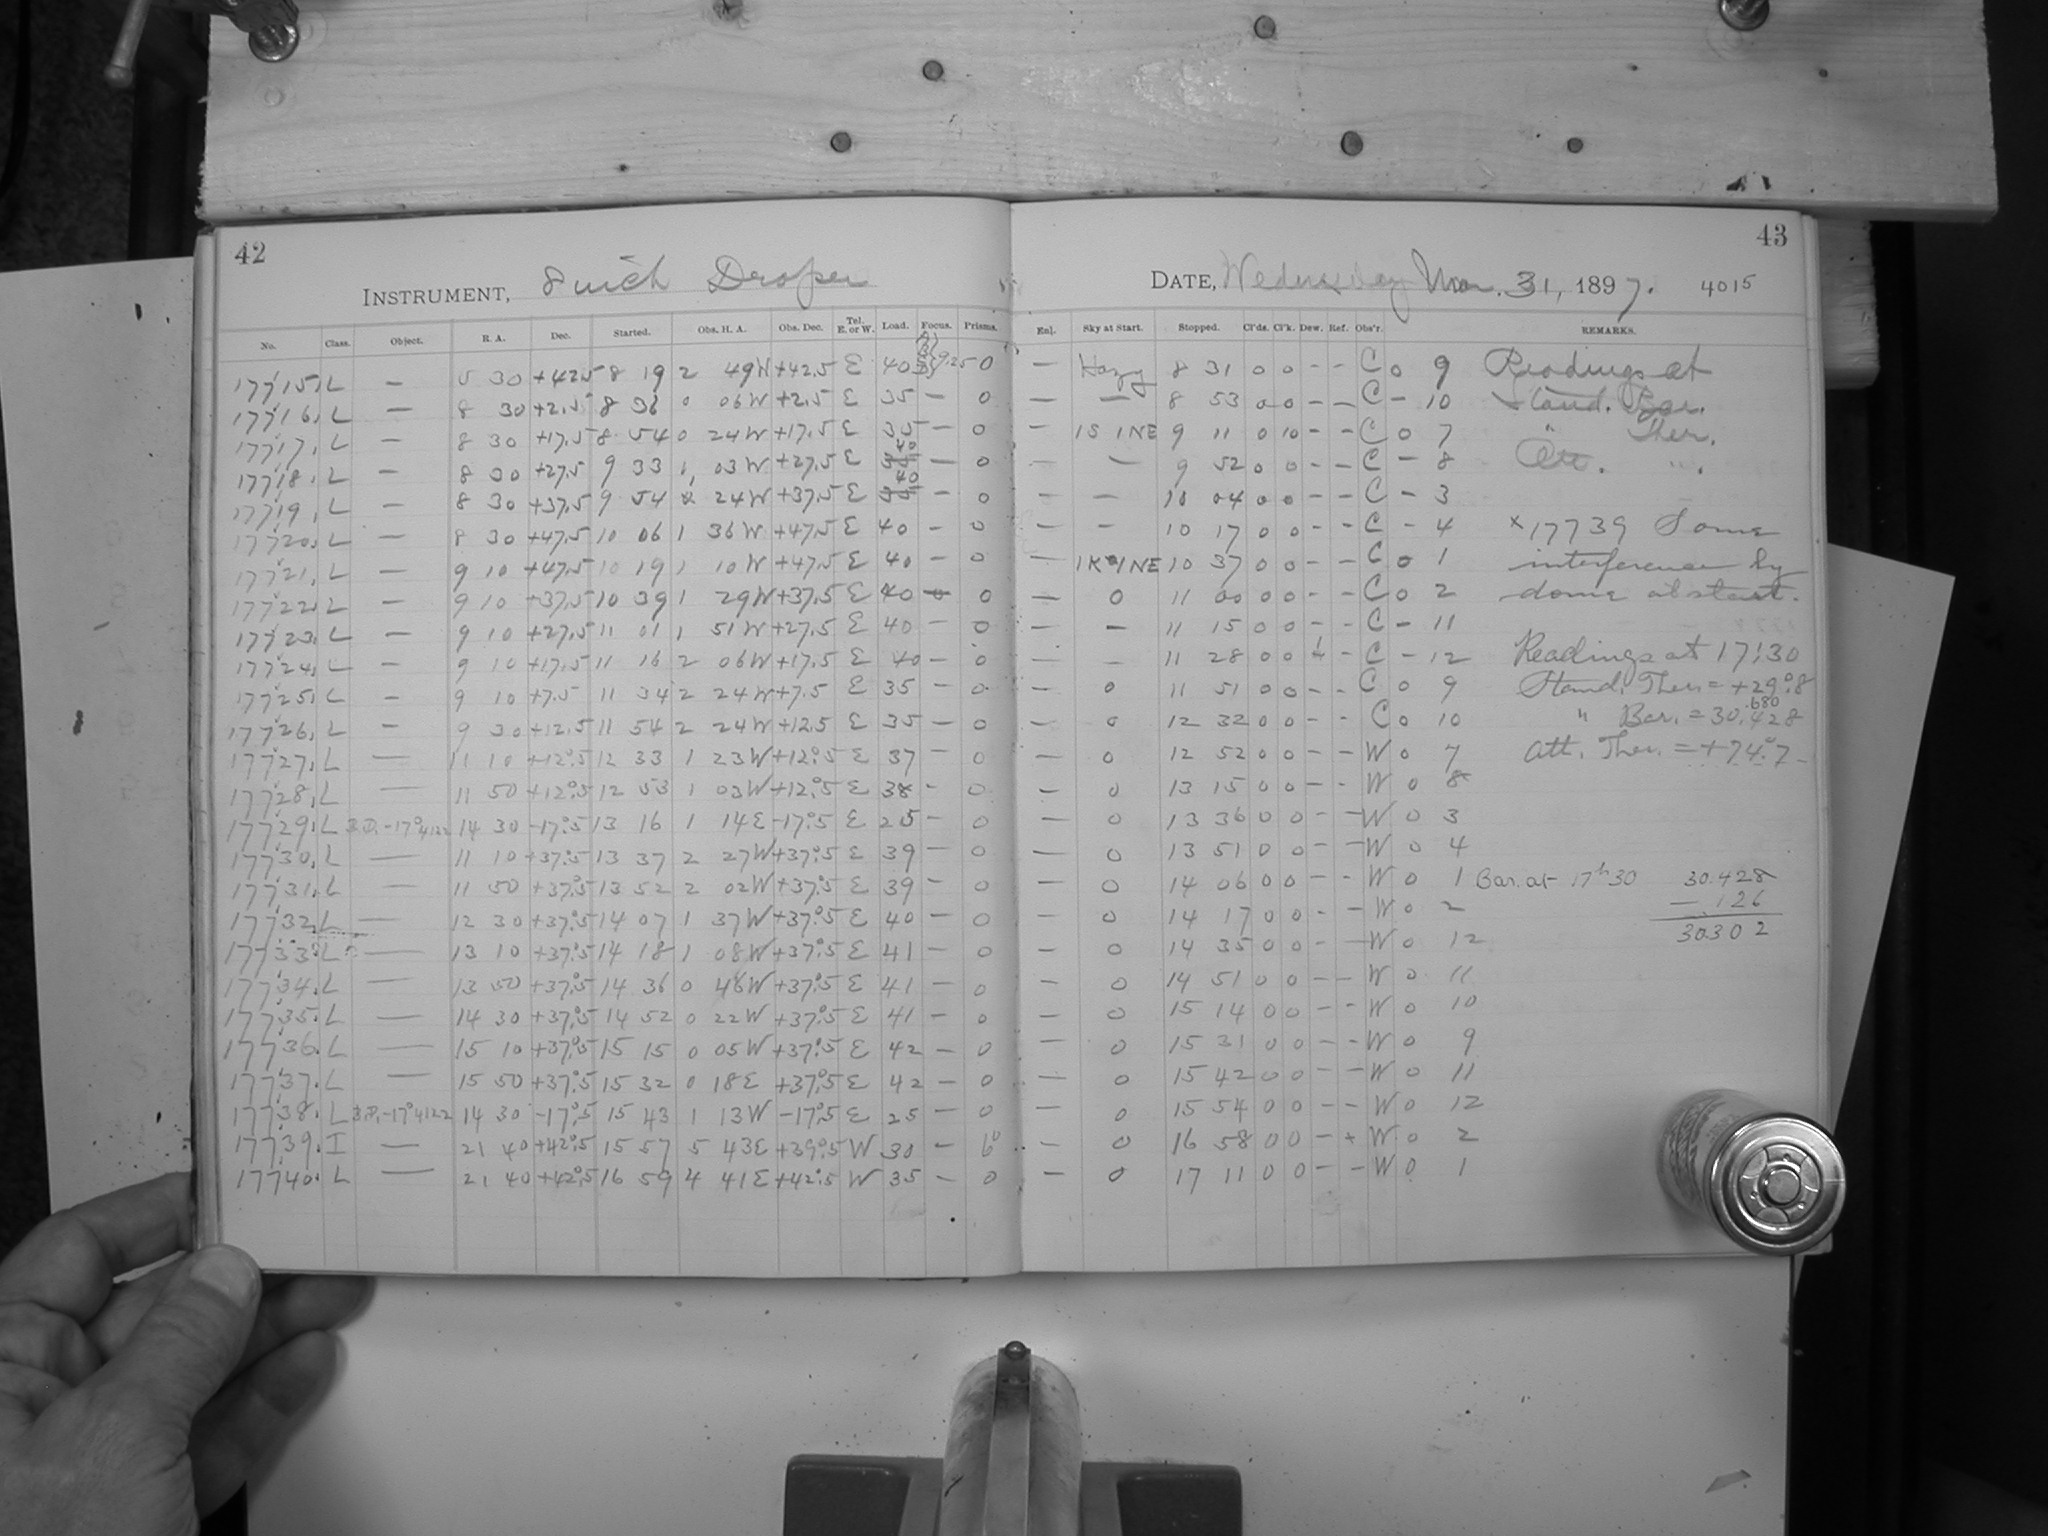 42
INSTRUMENT, 8 inch Draper
No. Class. Object. R. A. Dec. Started. Obs. H. A. Obs. Dec. Tel. E. or W. Load. Focus. Prisms.
17715. L — 5 30 +42.5 8 19 2 49W +42.5 E 40 0
17716. L — 8 30 +2.5 8 36 0 06W +2.5 E 35 — 0
17717. L — 8 30 +17.5 8 54 0 24W +17.5 E 35 — 0
17718. L — 8 30 +27.5 9 33 1 03W +27.5 E 40 — 0
17719. L — 8 30 +37.5 9 54 24W +37.5 E 40 — 0
17720. L — 8 30 +47.5 10 06 1 36W +47.5 E 40 — 0
17721. L — 9 10 +47.5 10 19 1 10W +47.5 E 40 — 0
17722. L — 9 10 +37.5 10 39 1 29W +37.5 E 40 — 0
17723. L — 9 10 +27.5 11 01 1 51W +27.5 E 40 — 0
17724. L — 9 10 +17.5 11 16 2 06W +17.5 E 40 — 0
17725. L — 9 10 +7.5 11 34 2 24W +7.5 E 35 — 0
17726. L — 9 30 +12.5 11 54 2 24W +12.5 E 35 — 0
17727. L — 11 10 +12°.5 12 33 1 23W +12°.5 E 37 — 0
17728. L — 11 50 +12°.5 12 53 1 03W +12°.5 E 38 — 0
17729. L B.D.-17°4122 14 30 -17°.5 13 16 1 14E -17°.5 E 25 — 0
17730. L — 11 10 +37°.5 13 37 2 27W +37°.5 E 39 — 0
17731. L — 11 50 +37°.5 13 52 2 02W +37°.5 E 39 — 0
17732 L — 12 30 +37°.5 14 07 1 37W +37°.5 E 40 — 0
17733. L — 13 10 +37°.5 14 18 1 08W +37°.5 E 41 — 0
17734. L — 13 50 +37°.5 14 36 0 46W +37°.5 E 41 — 0
17735. L — 14 30 +37°.5 14 52 0 22W +37°.5 E 41 — 0
17736. L — 15 10 +37°.5 15 15 0 05W +37°.5 E 42 — 0
17737. L — 15 50 +37°.5 15 32 0 18E +37°.5 E 42 — 0
17738. L B.D.-17°4122 14 30 -17°.5 15 43 1 13W -17°.5 E 25 — 0
17739. I — 21 40 +42°.5 15 57 5 43E +39°.5 W 30 —
17740. L — 21 40 +42°.5 16 59 4 41E +42°.5 W 35 — 0
43
DATE, Wednesday Mar. 31, 1897. 4015
Enl. Sky at Start. Stopped. Cl'ds. Cl'k. Dew. Ref. Obs'r. REMARKS.
— Hazy 8 31 0 0 - - C 0 9 Readings at
— — 8 53 0 0 - - C - 10 Stand. Bar.
— 1S 1NE 9 11 0 10 - - C 0 7 " Ther.
— — 9 52 0 0 - - C - 8 Att. "
— — 10 04 0 0 - - C - 3
— — 10 17 0 0 - - C - 4 x17739 Some
— 1NE 10 37 0 0 - - C 0 1 interference by
— 0 11 00 0 0 - - C 0 2 dome at start.
— — 11 15 0 0 - - C - 11
— — 11 28 0 0 - C - 12 Readings at 17:30
— 0 11 51 0 0 - - C 0 9 Stand. Ther. = +29°.8
— 0 12 32 0 0 - - C 0 10 " Bar. = 30.428 .680
— 0 12 52 0 0 - - W 0 7 Att. Ther. = +74°.7
— 0 13 15 0 0 - - W 0 8
— 0 13 36 0 0 - - W 0 3
— 0 13 51 0 0 - - W 0 4
— 0 14 06 0 0 - - W 0 1 Bar. at 17h30 30.428
— 0 14 17 0 0 - - W 0 2 — .126
— 0 14 35 0 0 - - W 0 12 30302
— 0 14 51 0 0 - - W 0 11
— 0 15 14 0 0 - - W 0 10
— 0 15 31 0 0 - - W 0 9
— 0 15 42 0 0 - - W 0 11
— 0 15 54 0 0 - - W 0 12
— 0 16 58 0 0 - x W 0 2
— 0 17 11 0 0 - - W 0 1